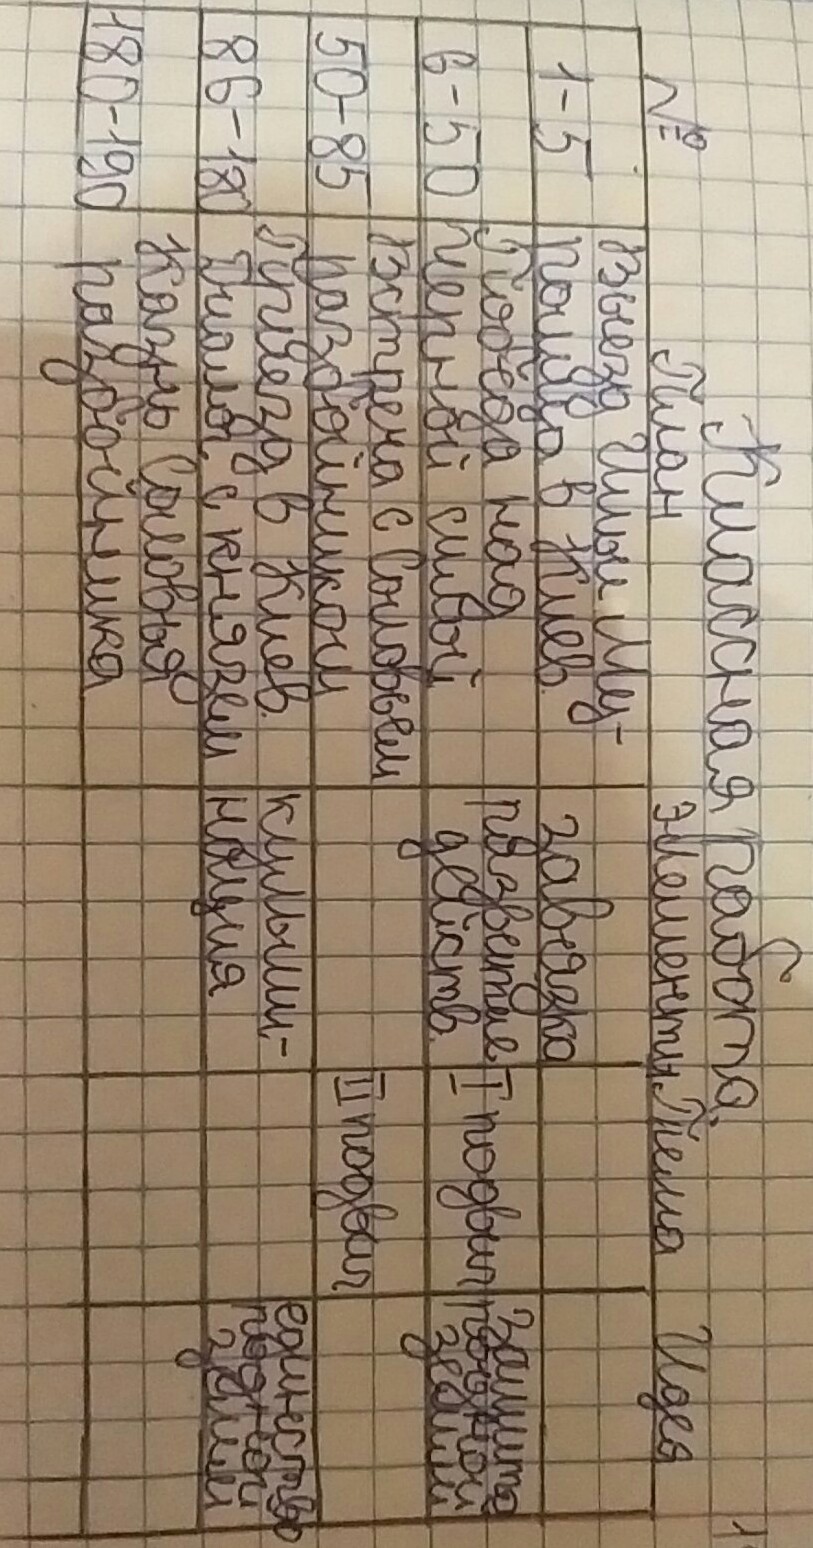 Классная работа.
№ План элементы Тема Идея
1-5 Выезд Ильи Му-
ромца в Киев. завязка
6-50 Победа над развитие I подвиг защита
черной силой действ. родной
земли
50-85 Встреча с Соловьем II подвиг
разбойником
86-180 Приезд в Киев. кульми- единство
Диалог с князем нация родной
земли
180-190 Казнь Соловья
разбойника